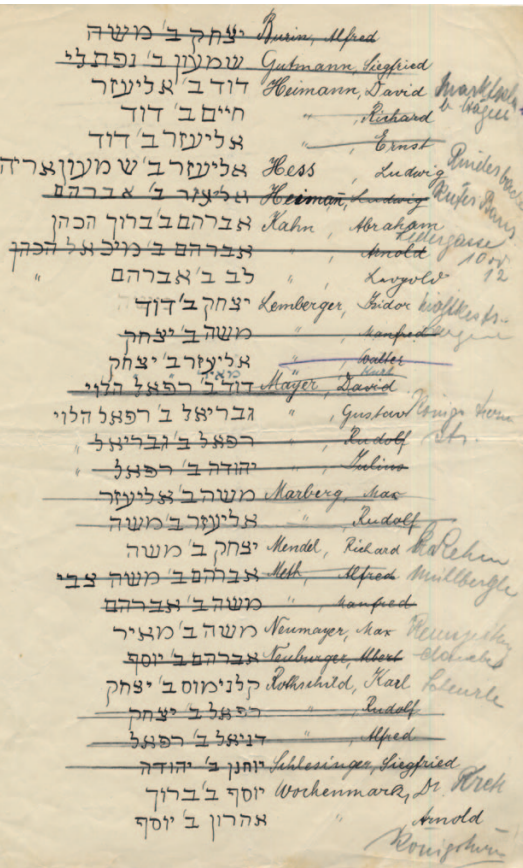 יצחק ב' משה Burin, Alfred
שמעון ב' נפתלי Gutmann, Siegfried
דוד ב' אליעזר Heimann, David
חיים ב' דוד " , Richard
אליעזר ב' דוד " , Ernst
אליעזר ב' שמעון אריה Hess , Ludwig
אליעזר ב' אברהם Heimann, Ludwig
אברהם ב' ברוך הכהן Kahn , Abraham
אברהם ב' מיכאל הכהן " , Arnold
" לב ב' אברהם " , Leopold
יצחק ב' דוד Lemberger, Isidor
משה ב' יצחק " , Manfred
אליעזר ב' יצחק " , Walter
דוד ב' רפאל הלוי Mayer, David
גבריאל ב' רפאל הלוי " , Gustav
רפאל ב' גבריאל " , Rudolf
יהודה ב' רפאל " , Julius
משה ב' אליעזר Marberg, Max
אליעזר ב' משה " , Rudolf
יצחק ב' משה Mendel, Richard
אברהם ב' משה צבי Meth, Alfred
משה ב' אברהם " , Manfred
משה ב' מאיר Neumayer, Max
אברהם ב' יוסף Neuburger, Albert
קלנימוס ב' יצחק Rothschild, Karl
רפאל ב' יצחק " , Rudolf
דניאל ב' רפאל " , Alfred
יוחנן ב' יהודה Schlesinger, Siegfried
יוסף ב' ברוך Wochenmark, Dr.
אהרון ב' יוסף " , Arnold